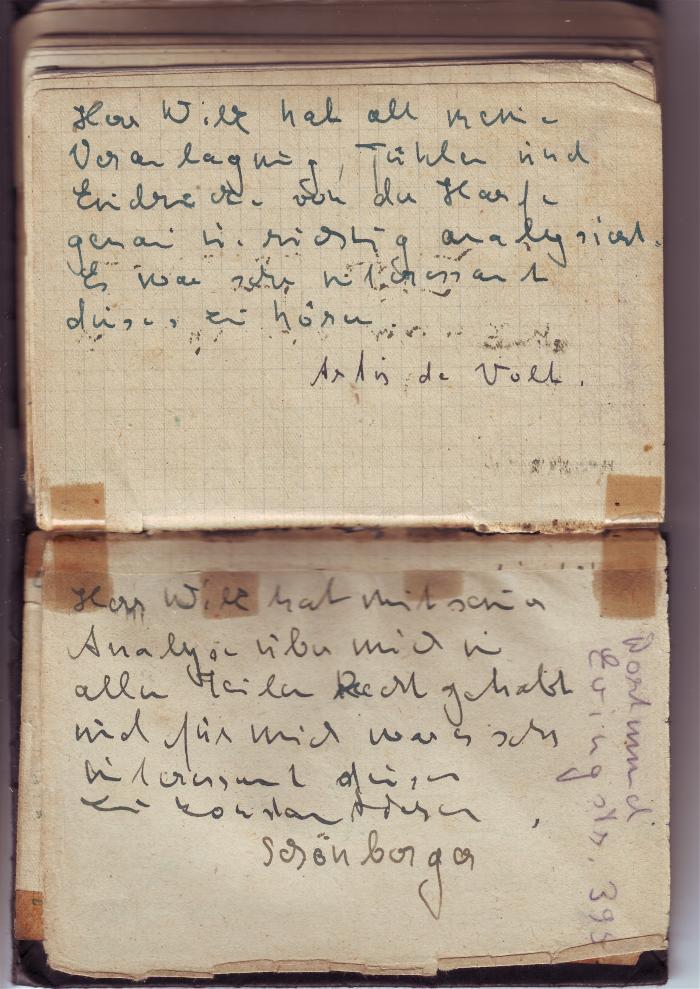 Herr Wilk hat all meine
Veranlagung, Fühlen und
Eindrücke von der Harfe
genau u. richtig analysiert.
Es war sehr interessant
dieses zu hören
Artis de Volt.
Herr Wilk hat mit seiner
Analyse über mich in
allen Teilen Recht gehabt
und für mich war es sehr
interessant dieses
zu
Schönberger
Dortmund
Evingstr.